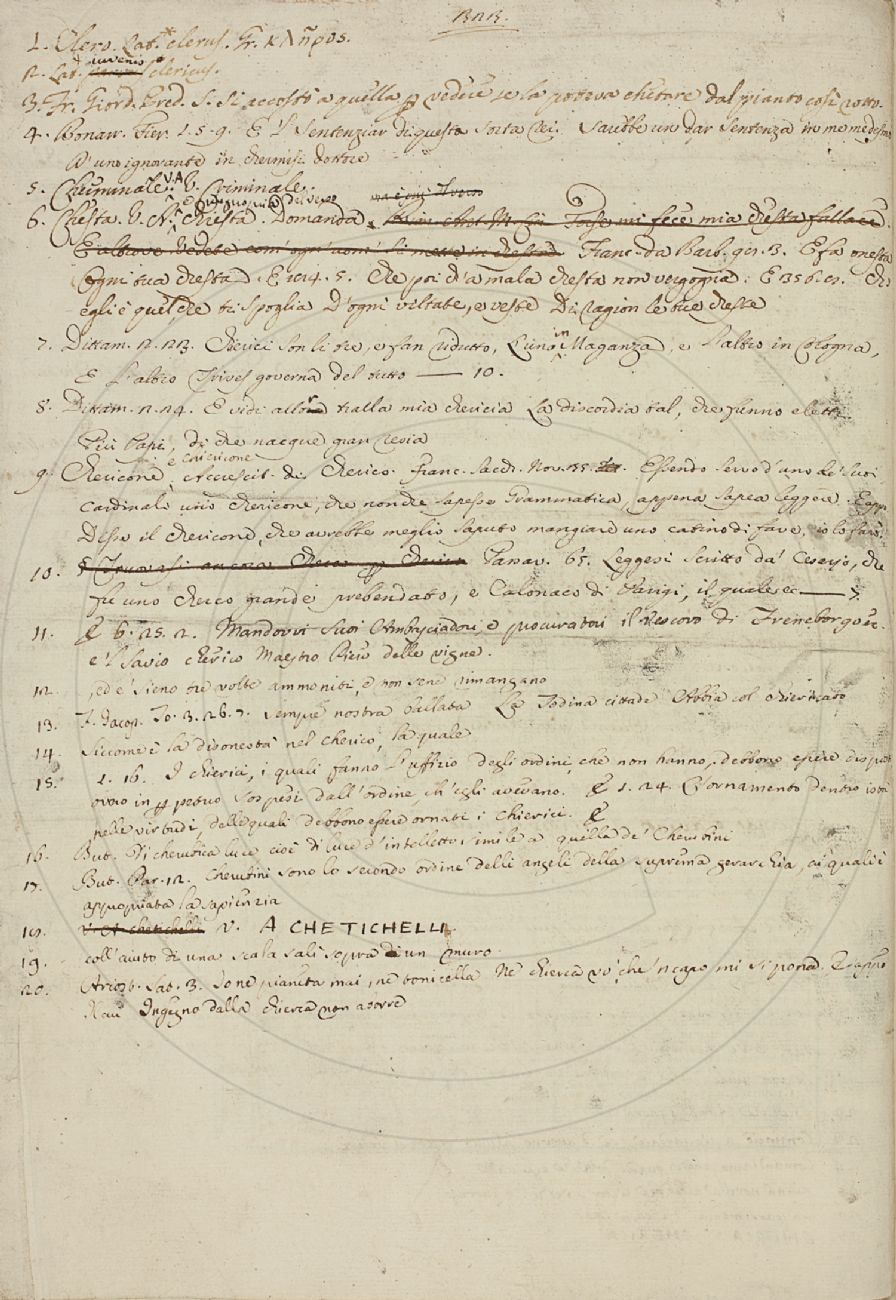 1. Clero. Lat. clerus. Gr. κλῆρος.
2. Lat. clericus.
3. Fr. Giord. Pred. S. Si accostò a quella p vedere se la poteva chetare dal pianto così rotto.
4. Bonarr. Fier. 1. 5. 9. E 'l Sentenziar di questa sorta rei Sarebbe un dar sentenza in me medesmo
D'uno ignorante in chermisi dottore
5. Cheriminale. V. A. V. Criminale.
6. Chesta. V. A. Chiesta. Domanda. Forse mi fece mia chesta fallace
E altrove Vedete com' ogn' uom' si mette in chesta Franc. da Barb. 91. 3. E fa onesta
Ogni tua chesta. E 114. 5. Che poi d'a mala chesta non vergogna: E 356. 19. Ch'
egli è quel che ti spoglia D'ogni viltate, e veste Di ragion le tue cheste
7. Dittam. 2. 23. Cherici son li tre, e fan ridutto, L'uno in Maganza, e l'altro in Cologna,
E l'altro Trives governa del tutto — 10.
8. Dittam. 2. 24. E vidi allor tralla mia chericia La discordia tal, che funno eletti
Più Papi, di che nacque gran resia
9. Chericone, e chiericone Accrescit. di Cherico. Franc. Sacch. Nov. 35. Essendo servo d'uno de' suoi
Cardinali uno chericone, che non che sapesse Grammatica, appena sapea leggere. E app.
Disse il chericone, che avrebbe meglio saputo mangiare uno catino di fave, io lo farò.
10. Passav. 65. Leggesi scritto da Cesario, che
fu uno cherco grande prebendato, e Calonaco di Parigi, il quale ec — 7.
11. E 6. 25. 2. Mandovvi suoi Ambasciadori, e procuratori il Vescovo di Freneborgo ec.
e 'l savio cherico Maestro Piero delle vigne.
12. , ed e' sieno tre volte ammoniti, e non sene rimangano
13. F. Jacop. To. 3. 26. 7. Sempre nostra ballata La Todina cittade Abbia col chiericato
14. Siccome è la disonestà nel cherico, la quale
15. 1. 16. I chierici, i quali fanno l'uffizio degli ordini, che non hanno, debbono essere disposti
ovvero in p petuo sospesi dall'ordine, ch'egli avevano. E 1. 24. L'ornamento dentro istà
nelle virtudi, delle quali debbono essere ornati i chierici. E
16. But. Di cherubica luce cioè di luce d'intelletto, simile a quella de' Cherubini
17. But. Par. 12. Cherubini sono lo secondo ordine delli angeli della suprema gerarchia, ai quali è
appropriata la sapienzia
18. V. A chetichelli V. A CHETICHELLI.
19. coll'aiuto di una scala salì sopra di un muro.
20. Ariost. Sat. 3. Io nè pianeta mai, nè tonicella Nè chierca vo' che 'n capo mi si pona.
Ingegno dalla chierca non aborre